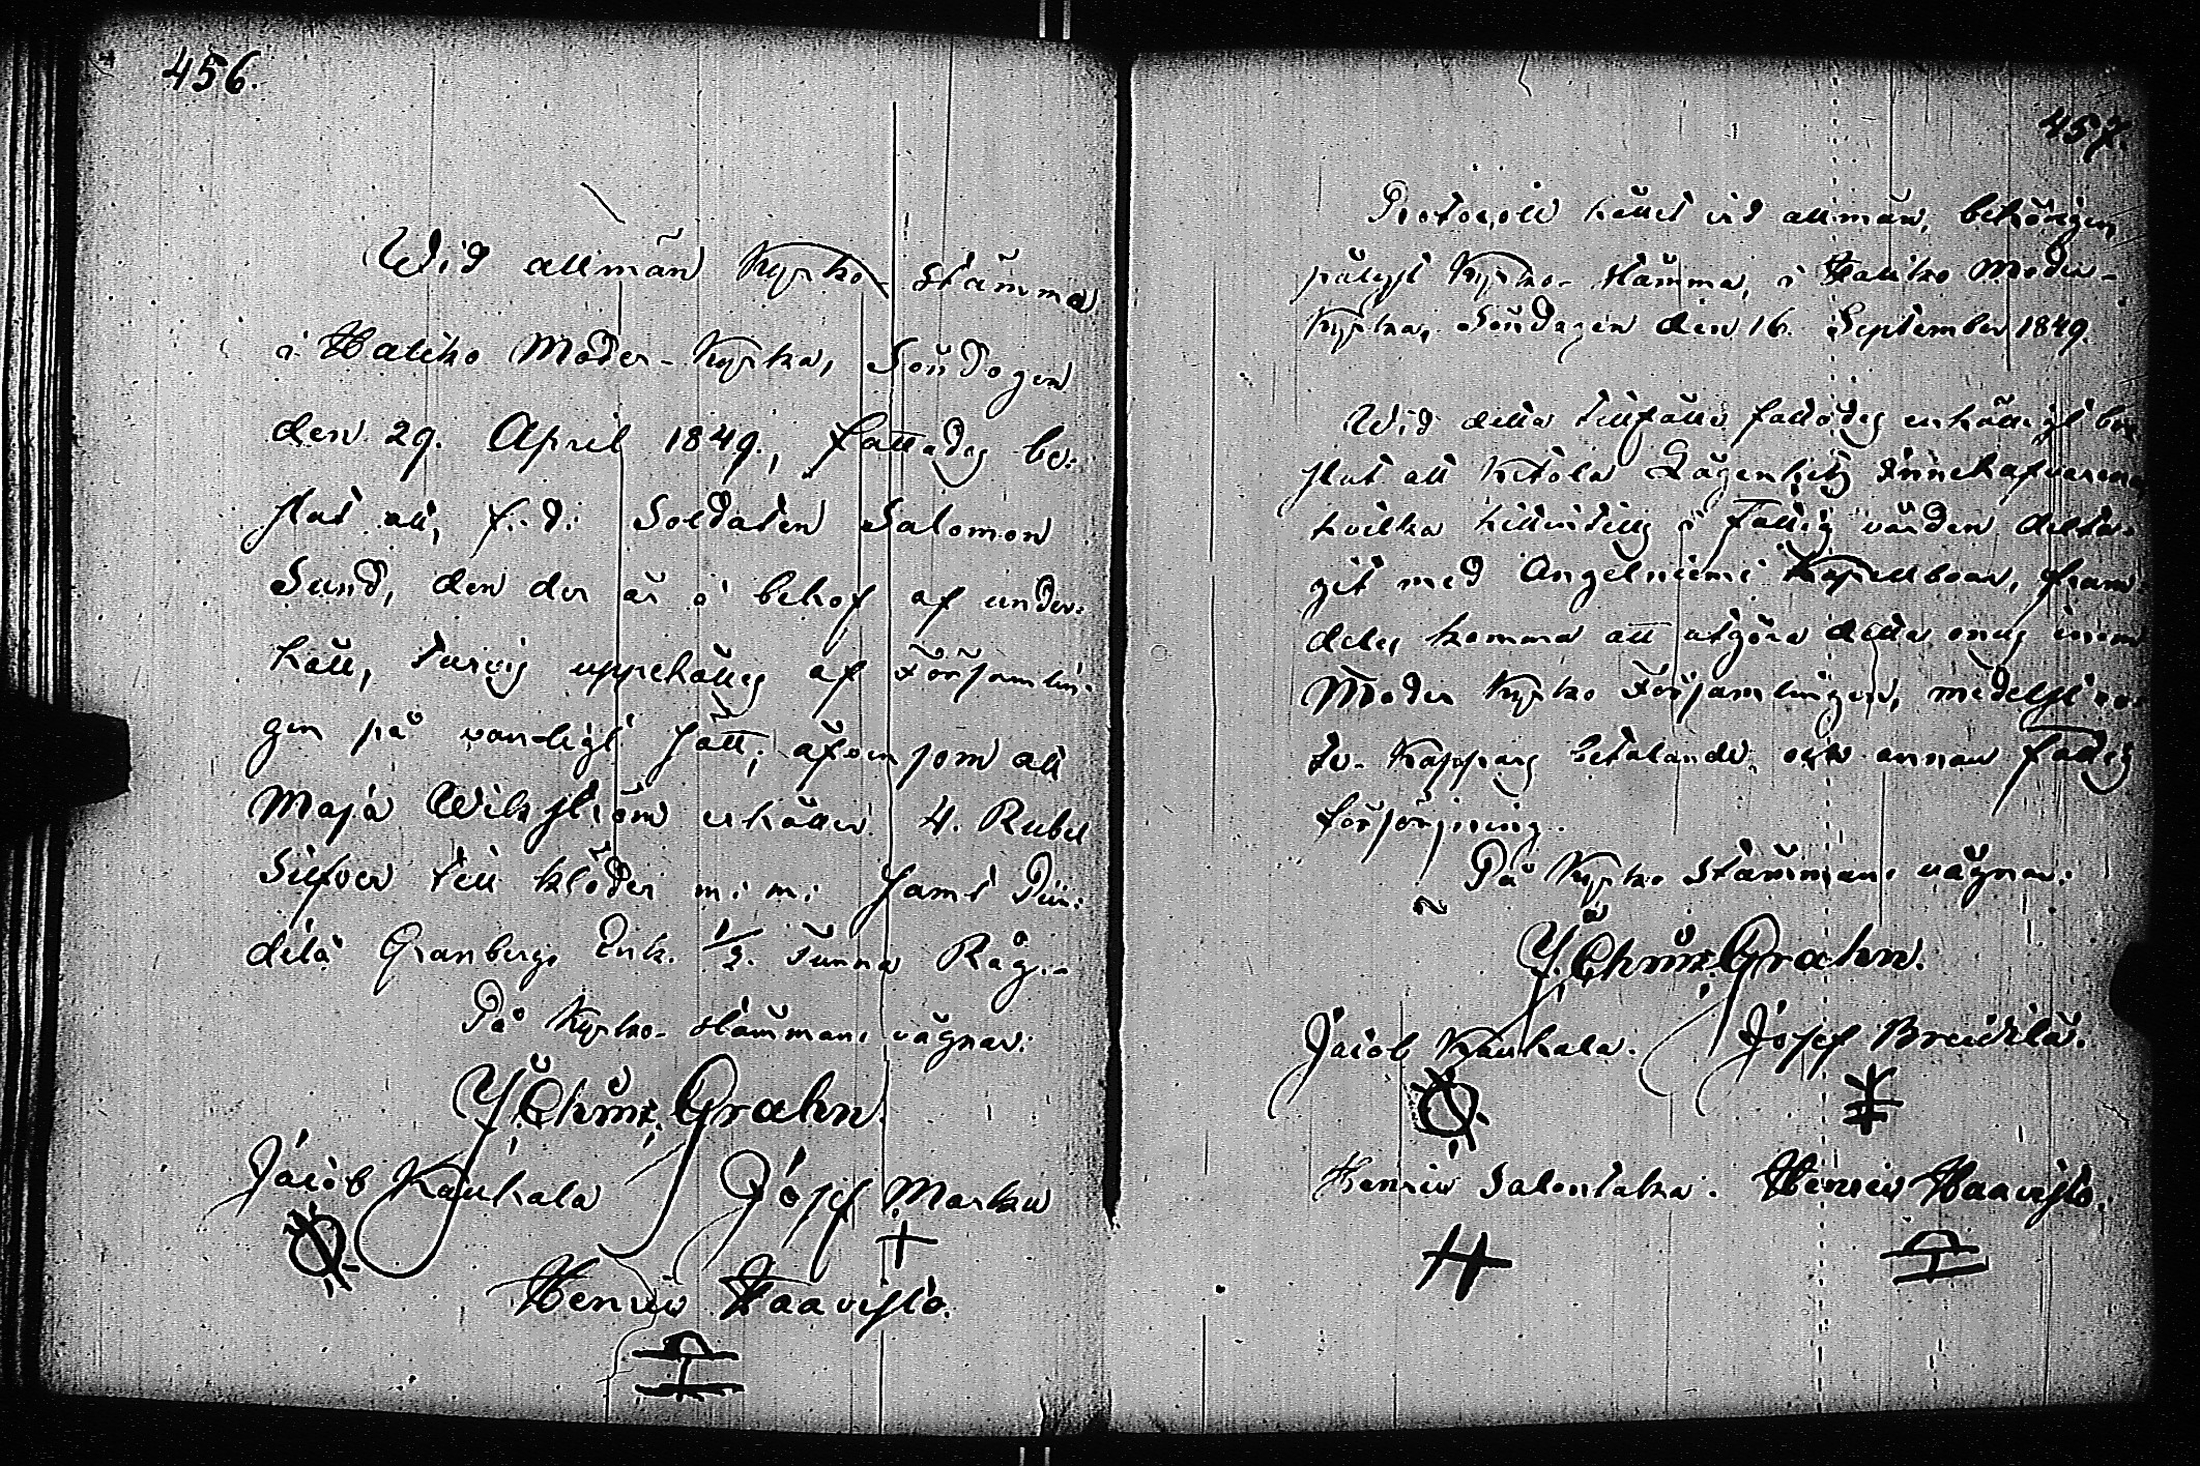 456.
Wid allmän Kyrko-stämma
i Haliko Moder-Kyrka, Söndagen
den 29. April 1849., fattades be-
slut att, f. d. Soldaten Salomon
Sund, den der är i behof af under-
håll, turvis uppehålles af Församlin-
gen på vanligt sätt; äfvensom att
Maja Wikström erhåller 4. Rubel
Silfver till kläder m. m. samt Pun-
dila Granbergs Enk. 1/2. Tunna Råg.-
På Kyrko-stämmans vägnar:
J. Chriz. Grahn.
Jacob Kaukala Josef Marku
Henric Haavisto.
457.
Protocoll hållet vid allmän, behörigen
pålyst Kyrko-stämma, i Haliko Moder-
Kyrka, Söndagen den 16. September 1849.
Wid detta tillfälle fattades enhälligt be-
slut att Ketola Lägenhets Innehafvare,
hvilka hittills i Fattig vården delta-
git med Angelniemi Kapellboar, fram-
deles komma att utgöra detta onus inom
Moder Kyrko Församlingen, medelst ro-
te-Kappars betalande, och annan Fattig
försörjning.
På Kyrko Stämmans vägnar:
J. Chriz. Grahn.
Jacob Kaukala. Josef Breidilä.
Henric Salonlaka. Henric Haavisto.